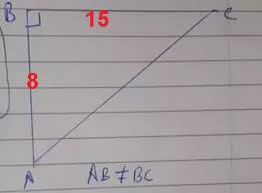 B 15 C
8
A AB ≠ BC